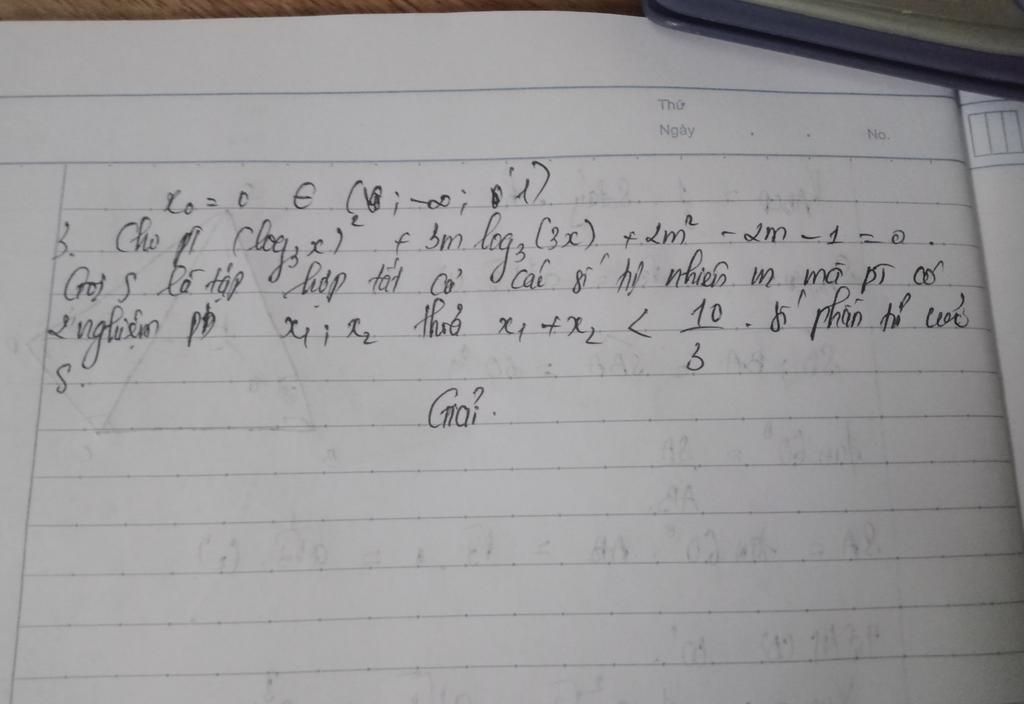 Thứ
Ngày . . No.
x₀ = 0 ∈ ( ; -∞ ; 1)
3. Cho pt (log₃x)² + 3m log₃(3x) + 2m² - 2m - 1 = 0.
Gọi S là tập hợp tất cả các số tự nhiên m mà pt có
2 nghiệm pb x₁ ; x₂ thoả x₁ + x₂ < 10/3 . số phần tử của
S.
Giải.